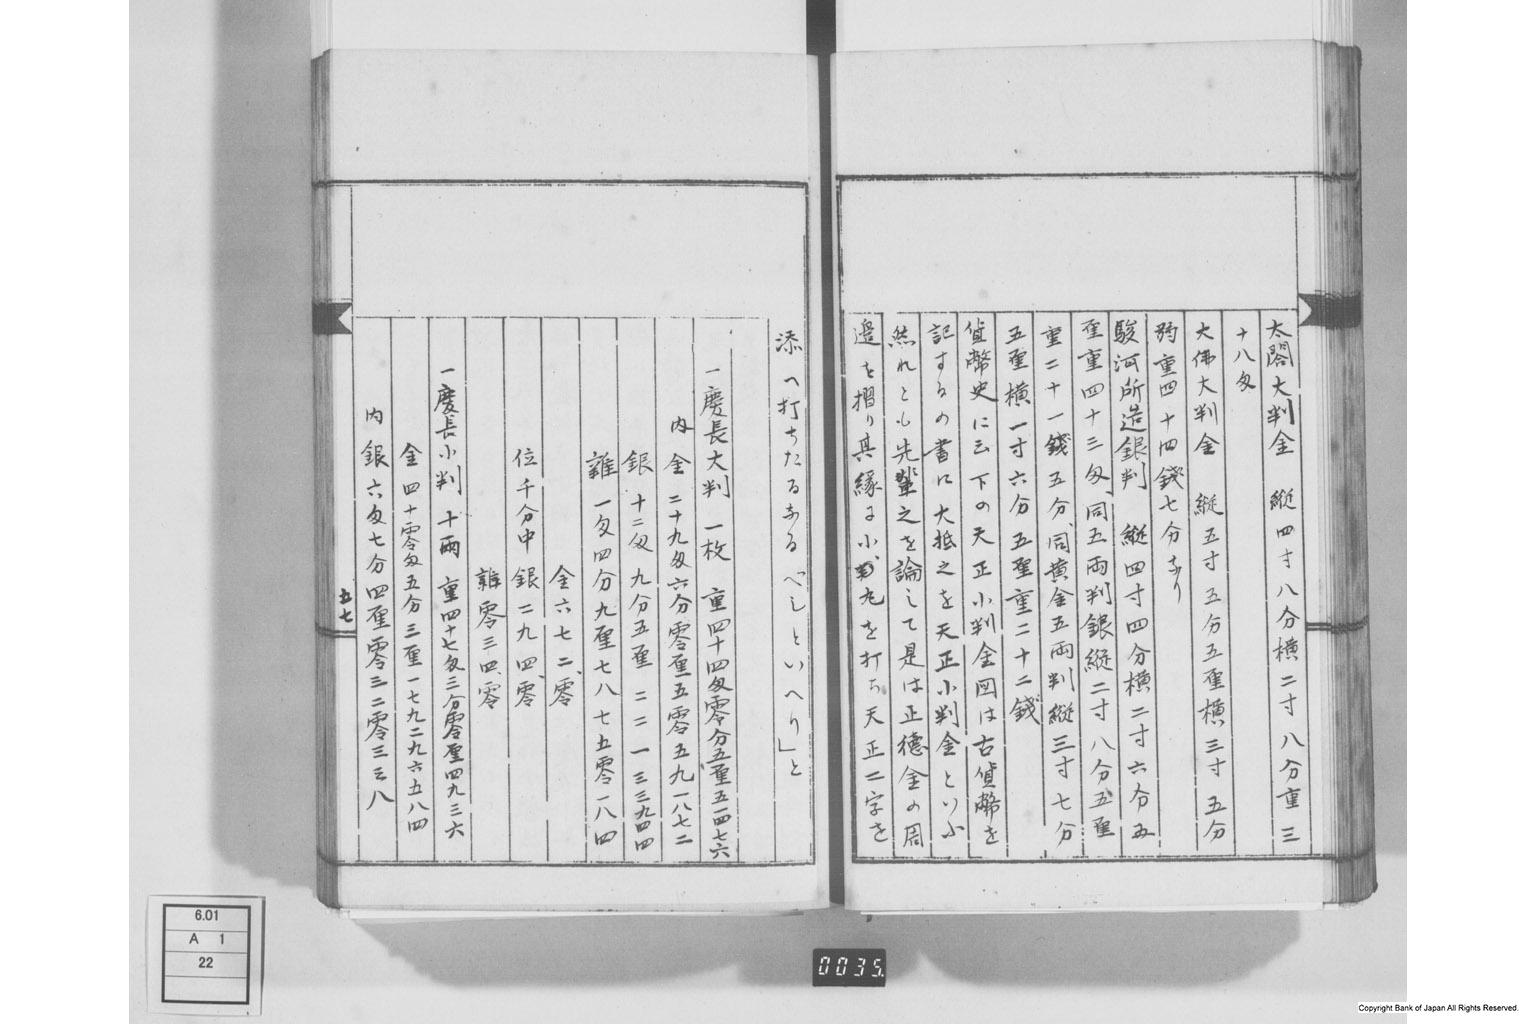 太閤大判金 縦四寸八分横二寸八分重三
十八匁
大佛大判金 縦五寸五分五厘横三寸五分
弱重四十四錢七分あり
駿河所造銀判 縦四寸四分横二寸六分五
厘重四十三匁、同五両判銀縦二寸八分五厘
重二十一錢五分、同黄金五両判縦三寸七分
五厘横一寸六分五厘重二十二錢
貨幣史に云下の天正小判金図は古貨幣を
記するの書に大抵之を天正小判金といふ
然れとも先輩之を論して是は正徳金の周
邉を摺り其縁に小丸を打ち天正二字を
添へ打ちたるあるべしといへり」と
一慶長大判 一枚 重四十四匁零分五厘五一四七六
内金 二十九匁六分零厘五零五九一八七二
銀 十二匁九分五厘二二一三三九四四
雜 一匁四分九厘七八七五零一八四
金六七二、零
位千分中 銀二九四、零
雜零三四、零
一慶長小判 十両 重四十七匁三分零厘四九三六
金四十零匁五分三厘一七九二九六五八四
内 銀六匁七分四厘零三二零三三八
五七
6.01
A 1
22
0035
Copyright Bank of Japan All Rights Reserved.